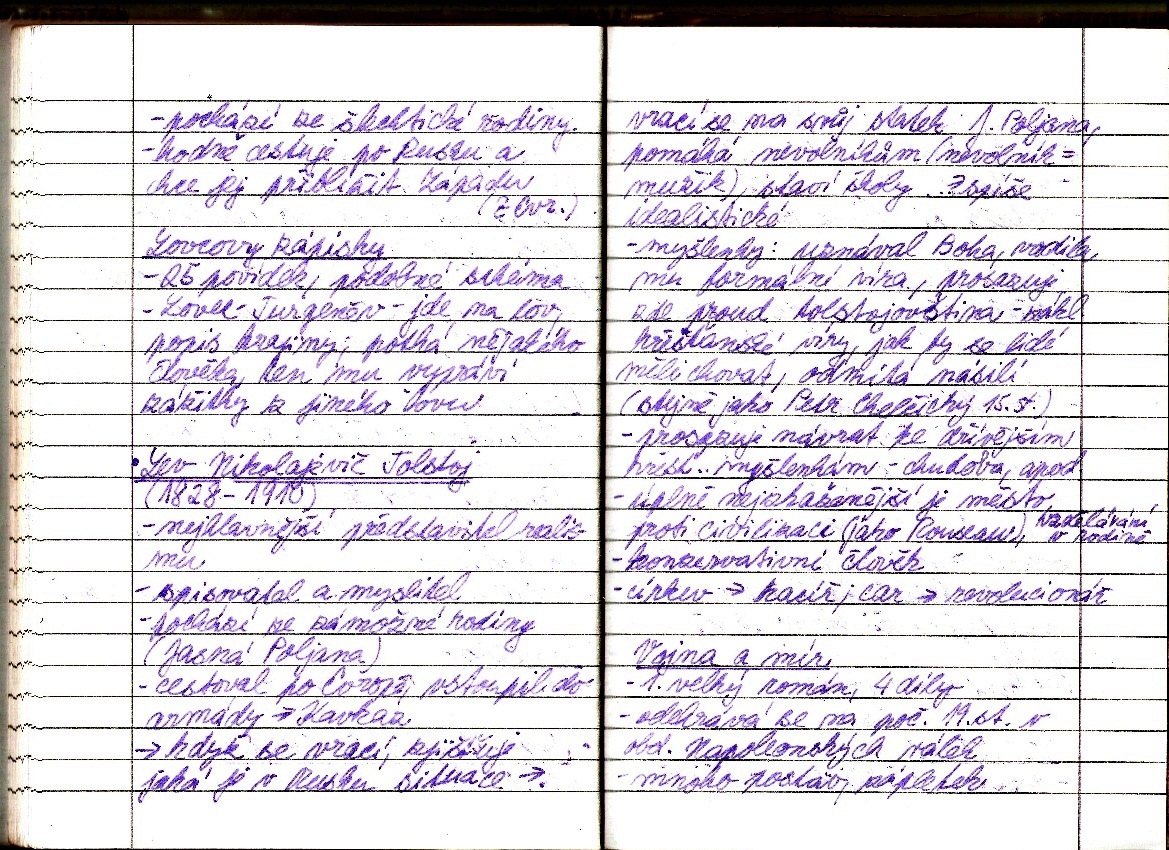 - pochází ze šlechtické rodiny
- hodně cestuje po Rusku a
chce jej přiblížit Západu
(Z Evr.)
Lovcovy zápisky
- 25 povídek, podobné schéma
- Lovec - Turgeněv - jde na lov,
popis krajiny; potká nějakého
člověka, ten mu vypráví
zážitky z jiného lovu
• Lev Nikolajevič Tolstoj
(1828 - 1910)
- nejhlavnější představitel realis-
mu
- spisovatel a myslitel
- pochází ze zámožné rodiny
(Jasná Poljana)
- cestoval po Evropě, vstoupil do
armády → Kavkaz
→ když se vrací, zjišťuje
jaká je v Rusku situace →
vrací se na svůj statek J. Poljana,
pomáhá nevolníkům (nevolník =
mužik), staví školy → spíše
idealistické
- myšlenky: uznával Boha, vadila
mu formální víra, prosazuje
zde proud tolstojovština -
křesťanské víry, jak by se lidé
měli chovat, odmítá násilí
(stejně jako Petr Chelčický 15. st.)
- prosazuje návrat ke dřívějším
křesť. myšlenkám - chudoba, apod
- úplně nejzkaženější je město
proti civilizaci (jako Rousseau), vzdělávání
v rodině
- konzervativní člověk
- církev → kacíř; car → revolucionář
Vojna a mír
- 1. velký román, 4 díly
- odehrává se na poč. 19. st. v
obd. Napoleonských válek
- mnoho postav, zápletek